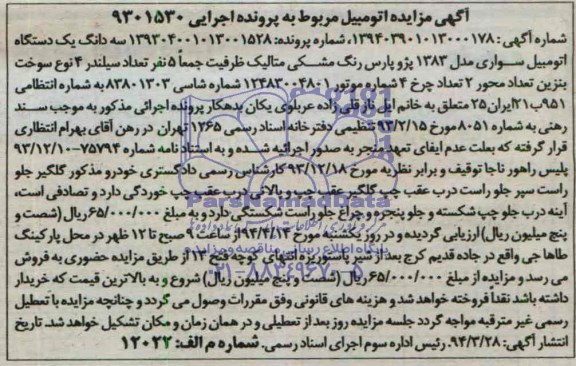 آگهی مزایده اتومبیل مربوط به پرونده اجرایی ۹۳۰۱۵۳۰
شماره آگهی: ۱۳۹۴۰۳۹۰۱۰۱۳۰۰۰۱۷۸، شماره پرونده: ۱۳۹۳۰۴۰۰۱۰۱۳۰۰۱۵۲۸ سه دانگ یک دستگاه
اتومبیل سواری مدل ۱۳۸۳ پژو پارس رنگ مشکی متالیک ظرفیت جمعاً ۵ نفر تعداد سیلندر ۴ نوع سوخت
بنزین تعداد محور ۲ تعداد چرخ ۴ شماره موتور ۱۲۴۸۳۰۰۴۸۰۱ شماره شاسی ۸۳۸۰۱۳۰۳ به شماره انتظامی
۹۵۱ب۲۱ ایران ۲۵ متعلق به خانم ایل ناز قلی زاده عربلوی یکان بدهکار پرونده اجرائی مذکور به موجب سند
رهنی به شماره ۸۰۵۱ مورخ ۹۳/۲/۱۵ تنظیمی دفترخانه اسناد رسمی ۱۳۶۵ تهران در رهن آقای بهرام انتظاری
قرار گرفته که بعلت عدم ایفای تعهد منجر به صدور اجرائیه شده و به استناد نامه شماره ۷۵۷۹۴-۹۳/۱۲/۱۰
پلیس راهور ناجا توقیف و برابر نظریه مورخ ۹۳/۱۲/۱۸ کارشناس رسمی دادگستری خودرو مذکور گلگیر جلو
راست سپر جلو راست درب عقب چپ گلگیر عقب چپ و بالائی درب عقب چپ خوردگی دارد و تصادفی است،
آینه درب جلو چپ شکسته و جلو پنجره و چراغ جلو راست شکستگی دارد و به مبلغ ۶۵/۰۰۰/۰۰۰ ریال (شصت و
پنج میلیون ریال) ارزیابی گردیده و در روز یکشنبه مورخ ۹۴/۴/۱۴ از ساعت ۹ صبح تا ۱۲ ظهر در محل پارکینگ
طاها جی واقع در جاده قدیم کرج بعد از شیر پاستوریزه انتهای کوچه فتح ۱۳ از طریق مزایده حضوری به فروش
می رسد و مزایده از مبلغ ۶۵/۰۰۰/۰۰۰ ریال (شصت و پنج میلیون ریال) شروع و به بالاترین قیمت که خریدار
داشته باشد نقداً فروخته خواهد شد و هزینه های قانونی وفق مقررات وصول می گردد و چنانچه مزایده با تعطیل
رسمی غیر مترقبه مواجه گردد جلسه مزایده روز بعد از تعطیلی و در همان زمان و مکان تشکیل خواهد شد. تاریخ
انتشار آگهی: ۹۴/۳/۲۸. رئیس اداره سوم اجرای اسناد رسمی. شماره م الف: ۱۲۰۲۲
ParsNamadData
پایگاه اطلاع رسانی مناقصه و مزایده
۰۲۱-۸۸۳۴۹۶۷۰-۵